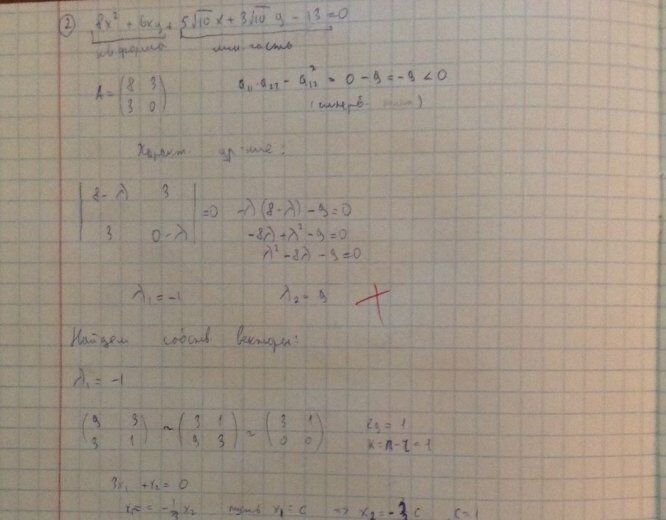 ② 8x² + 6xy + 5√10 x + 3√10 y - 13 = 0
кв. форма лин. часть
A = (8 3
3 0) a₁₁·a₂₂ - a₁₂² = 0 - 9 = -9 < 0
Характ. ур-ние:
|8-λ 3|
|3 0-λ| = 0 -λ(8-λ) - 9 = 0
-8λ + λ² - 9 = 0
λ² - 8λ - 9 = 0
λ₁ = -1 λ₂ = 9
Найдем собств. векторы:
λ₁ = -1
(9 3
3 1) ~ (3 1
9 3) ~ (3 1
0 0) rg = 1
k = n - r = 1
3x₁ + x₂ = 0
x₁ = -⅓ x₂ пусть x₁ = c => x₂ = -3c c = 1